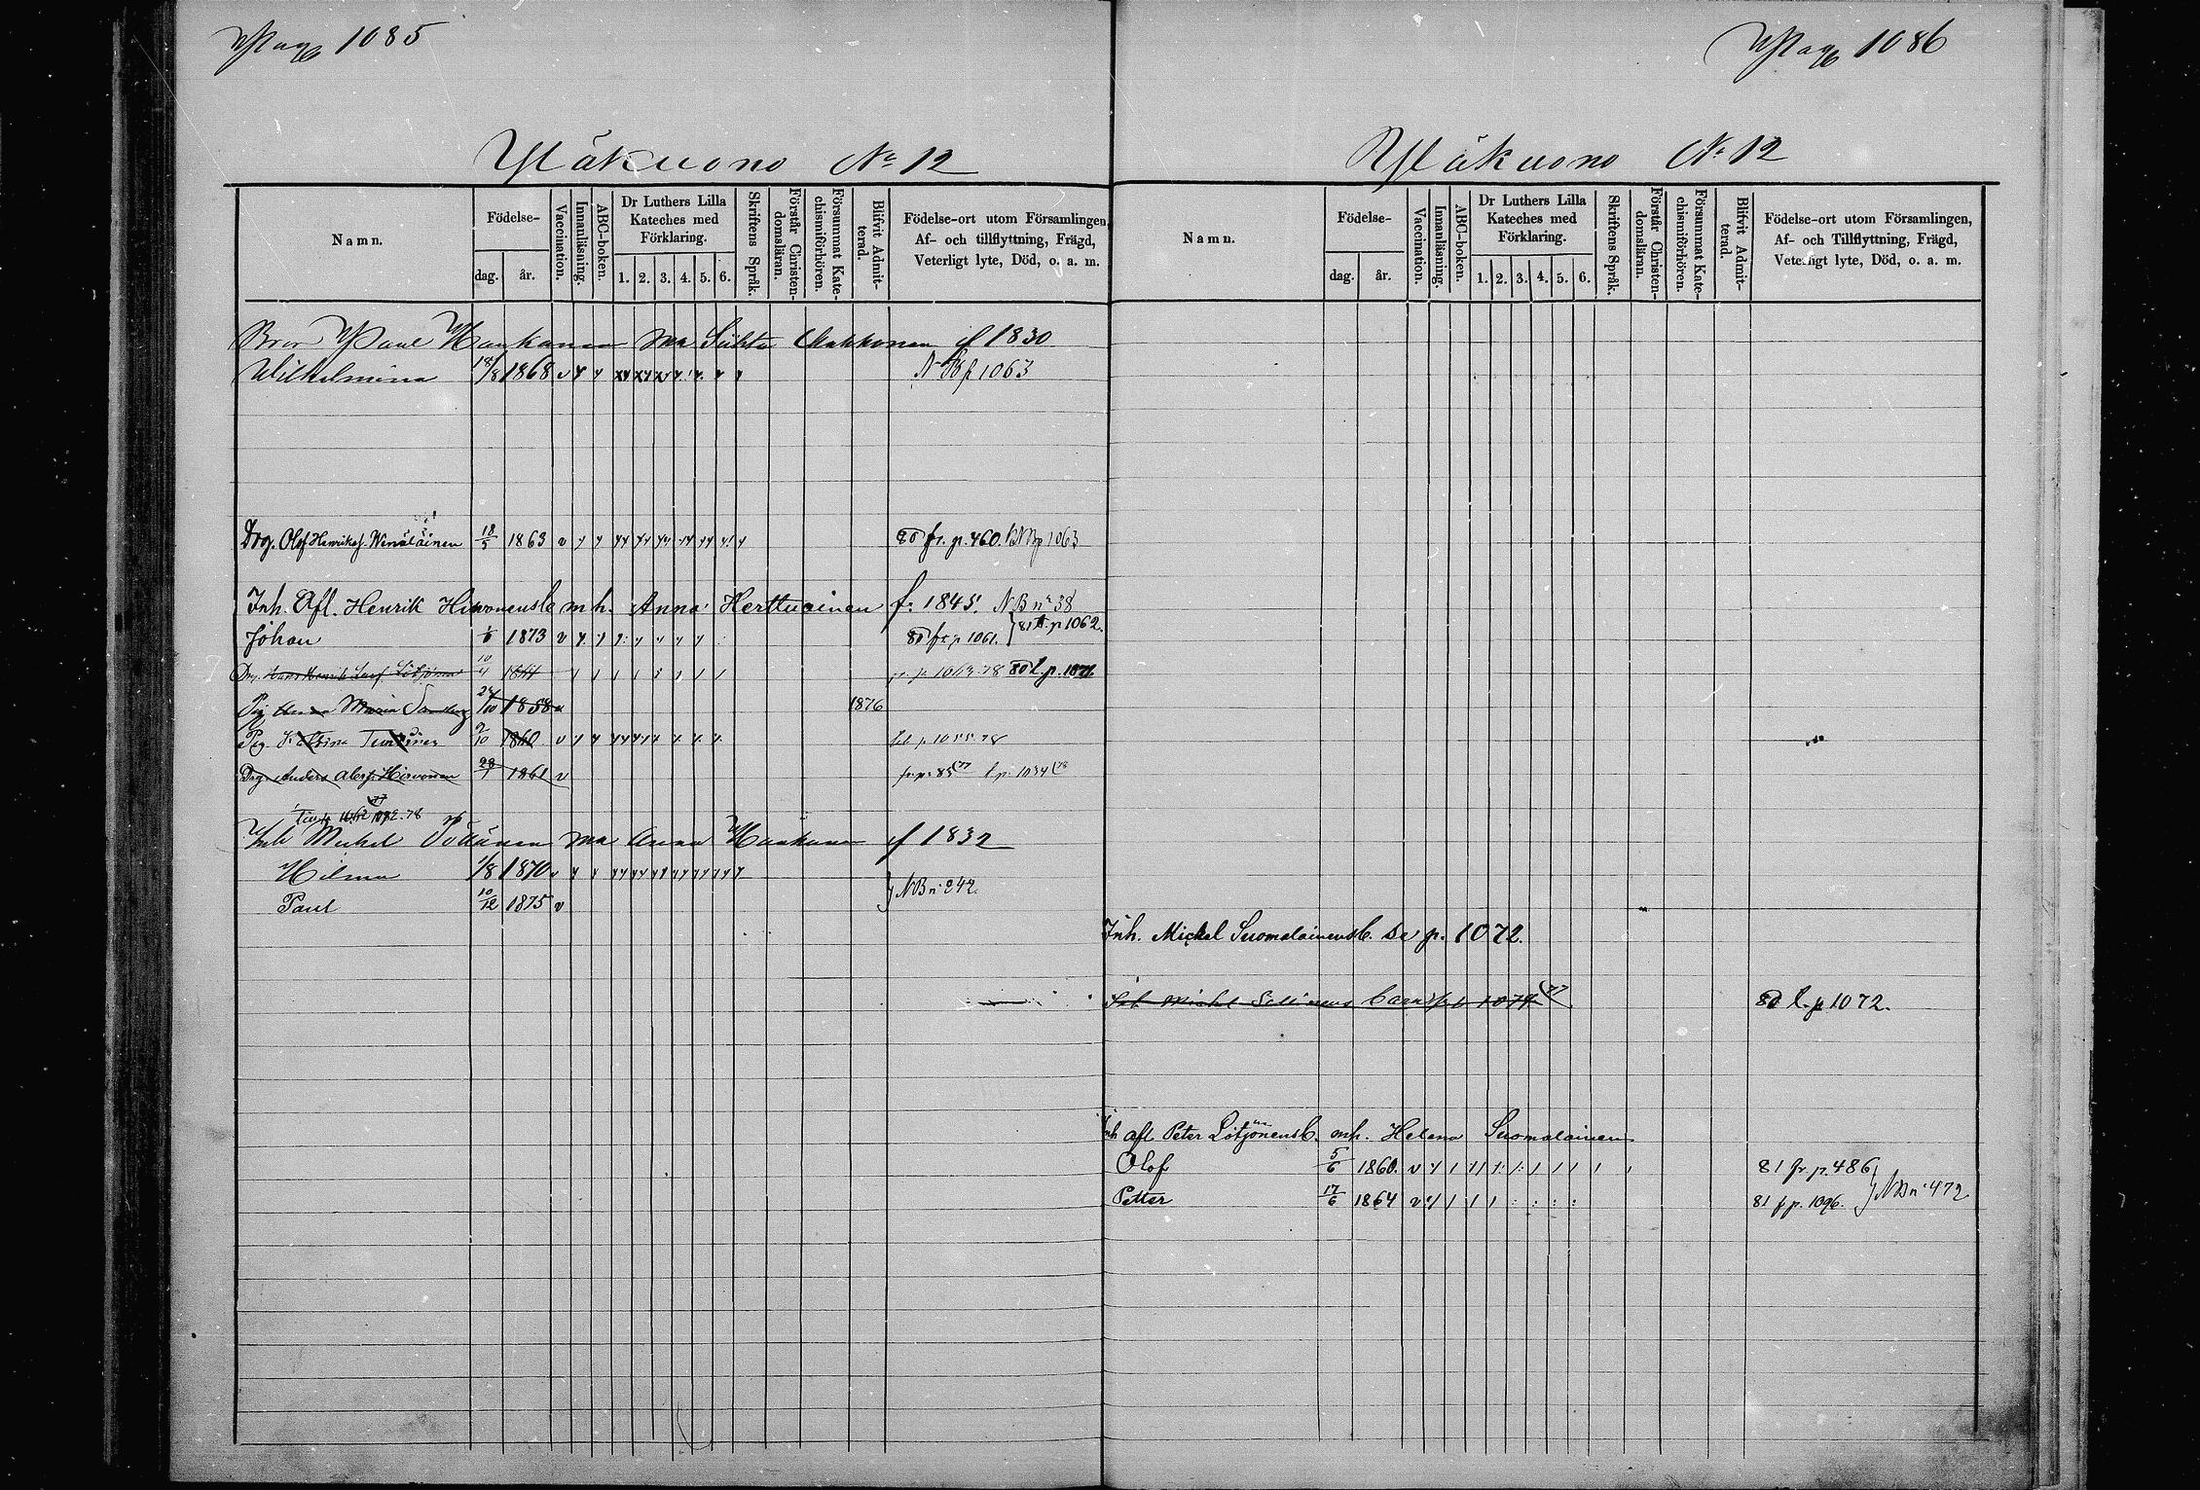 Pag 1085
Yläkuono No 12
Namn.
Födelse-
dag. år.
Vaccination.
Innanläsning.
ABC-boken.
Dr Luthers Lilla Kateches med Förklaring.
1. 2. 3. 4. 5. 6.
Skriftens Språk.
Förstår Christen-domsläran.
Försummat Kate-chismiförhören.
Blifvit Admit-terad.
Födelse-ort utom Församlingen, Af- och tillflyttning, Frägd, Veterligt lyte, Död, o. a. m.
Bror Paul Haukanen ma Makkonen f 1830
Wilhelmina 18/8 1868 v NB p 1063
Drg. Olof Henriksf Wenäläinen 18/5 1863 v 80 fr. p. 460. NB p 1063
Inh. Afl. Henrik Hirvonensb. m h. Anna Herttuainen f. 1845. NB n: 38
Johan 1873 v 80 fr. p 1061. 81 p 1062.
Drg. Henrik Lötjönen 10/4 p. 1063. 78 80 l p.
Pig Maria 24/10 1858 1876
Pig. Katrina 9/10 1860 v p 1055. 78
Drg. Anders Hirvonen 28/1 1861 v fr. p. 85 77 l p. 1034 78
Inh Michel ma Anna Haukanen f 1832
Hilma 1/8 1870 v
Paul 10/12 1875 v } NB n: 242.
Pag 1086
Yläkuono No 12
Namn.
Födelse-
dag. år.
Vaccination.
Innanläsning.
ABC-boken.
Dr Luthers Lilla Kateches med Förklaring.
1. 2. 3. 4. 5. 6.
Skriftens Språk.
Förstår Christen-domsläran.
Försummat Kate-chismiförhören.
Blifvit Admit-terad.
Födelse-ort utom Församlingen, Af- och Tillflyttning, Frägd, Veterligt lyte, Död, o. a. m.
Inh. Mickel Suomalainensb. Se p. 1072.
Michel Barn 1074 77 80 l. p 1072.
Inh afl Peter Lötjönensb. mh. Helena Suomalainen
Olof 5/6 1860. v 81 fr. p. 486
Petter 17/6 1864 v 81 f p. 1096. } NB n: 472